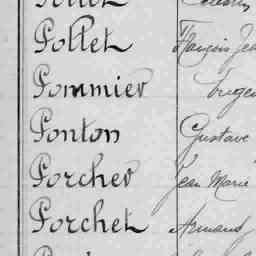 Pollet François Je
Pommier Eugè
Ponton Gustave
Porcher Jean Marie
Porchet Armand